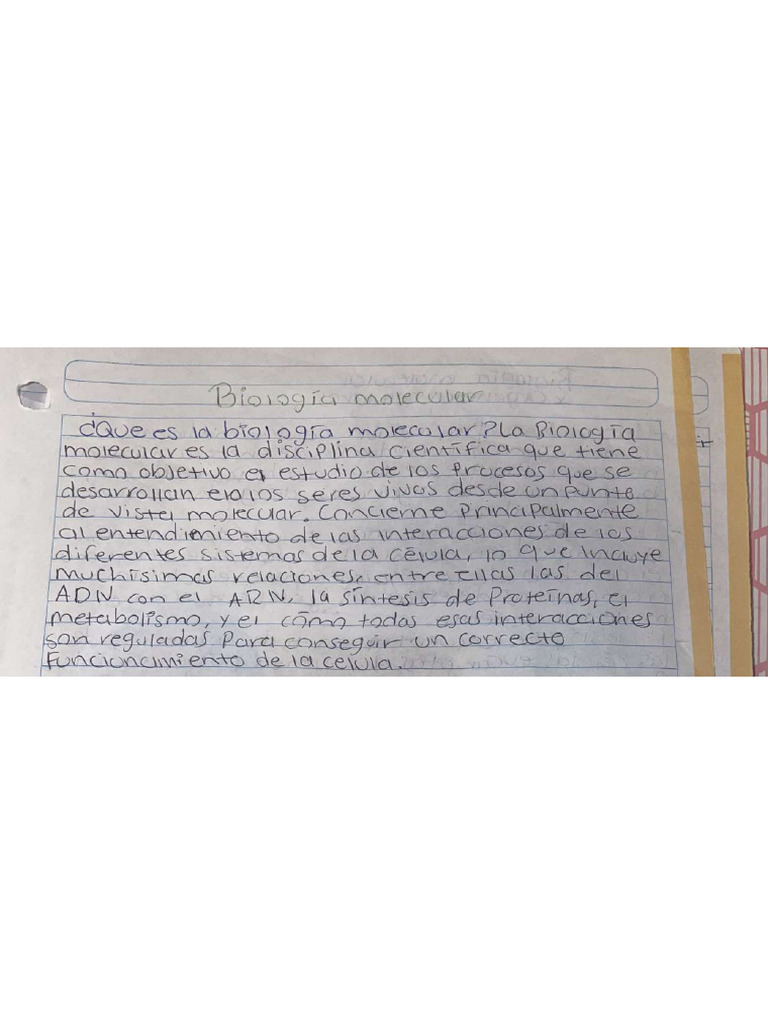 Biología molecular
¿Que es la biología molecular? La Biología
molecular es la disciplina científica que tiene
como objetivo el estudio de los procesos que se
desarrollan en los seres vivos desde un punto
de vista molecular. Concierne Principalmente
al entendimiento de las interacciones de los
diferentes sistemas de la célula, lo que incluye
muchísimas relaciones, entre ellas las del
ADN con el ARN, la síntesis de Proteínas, el
metabolismo, y el cómo todas esas interacciones
son reguladas Para conseguir un correcto
Funcionamiento de la celula.